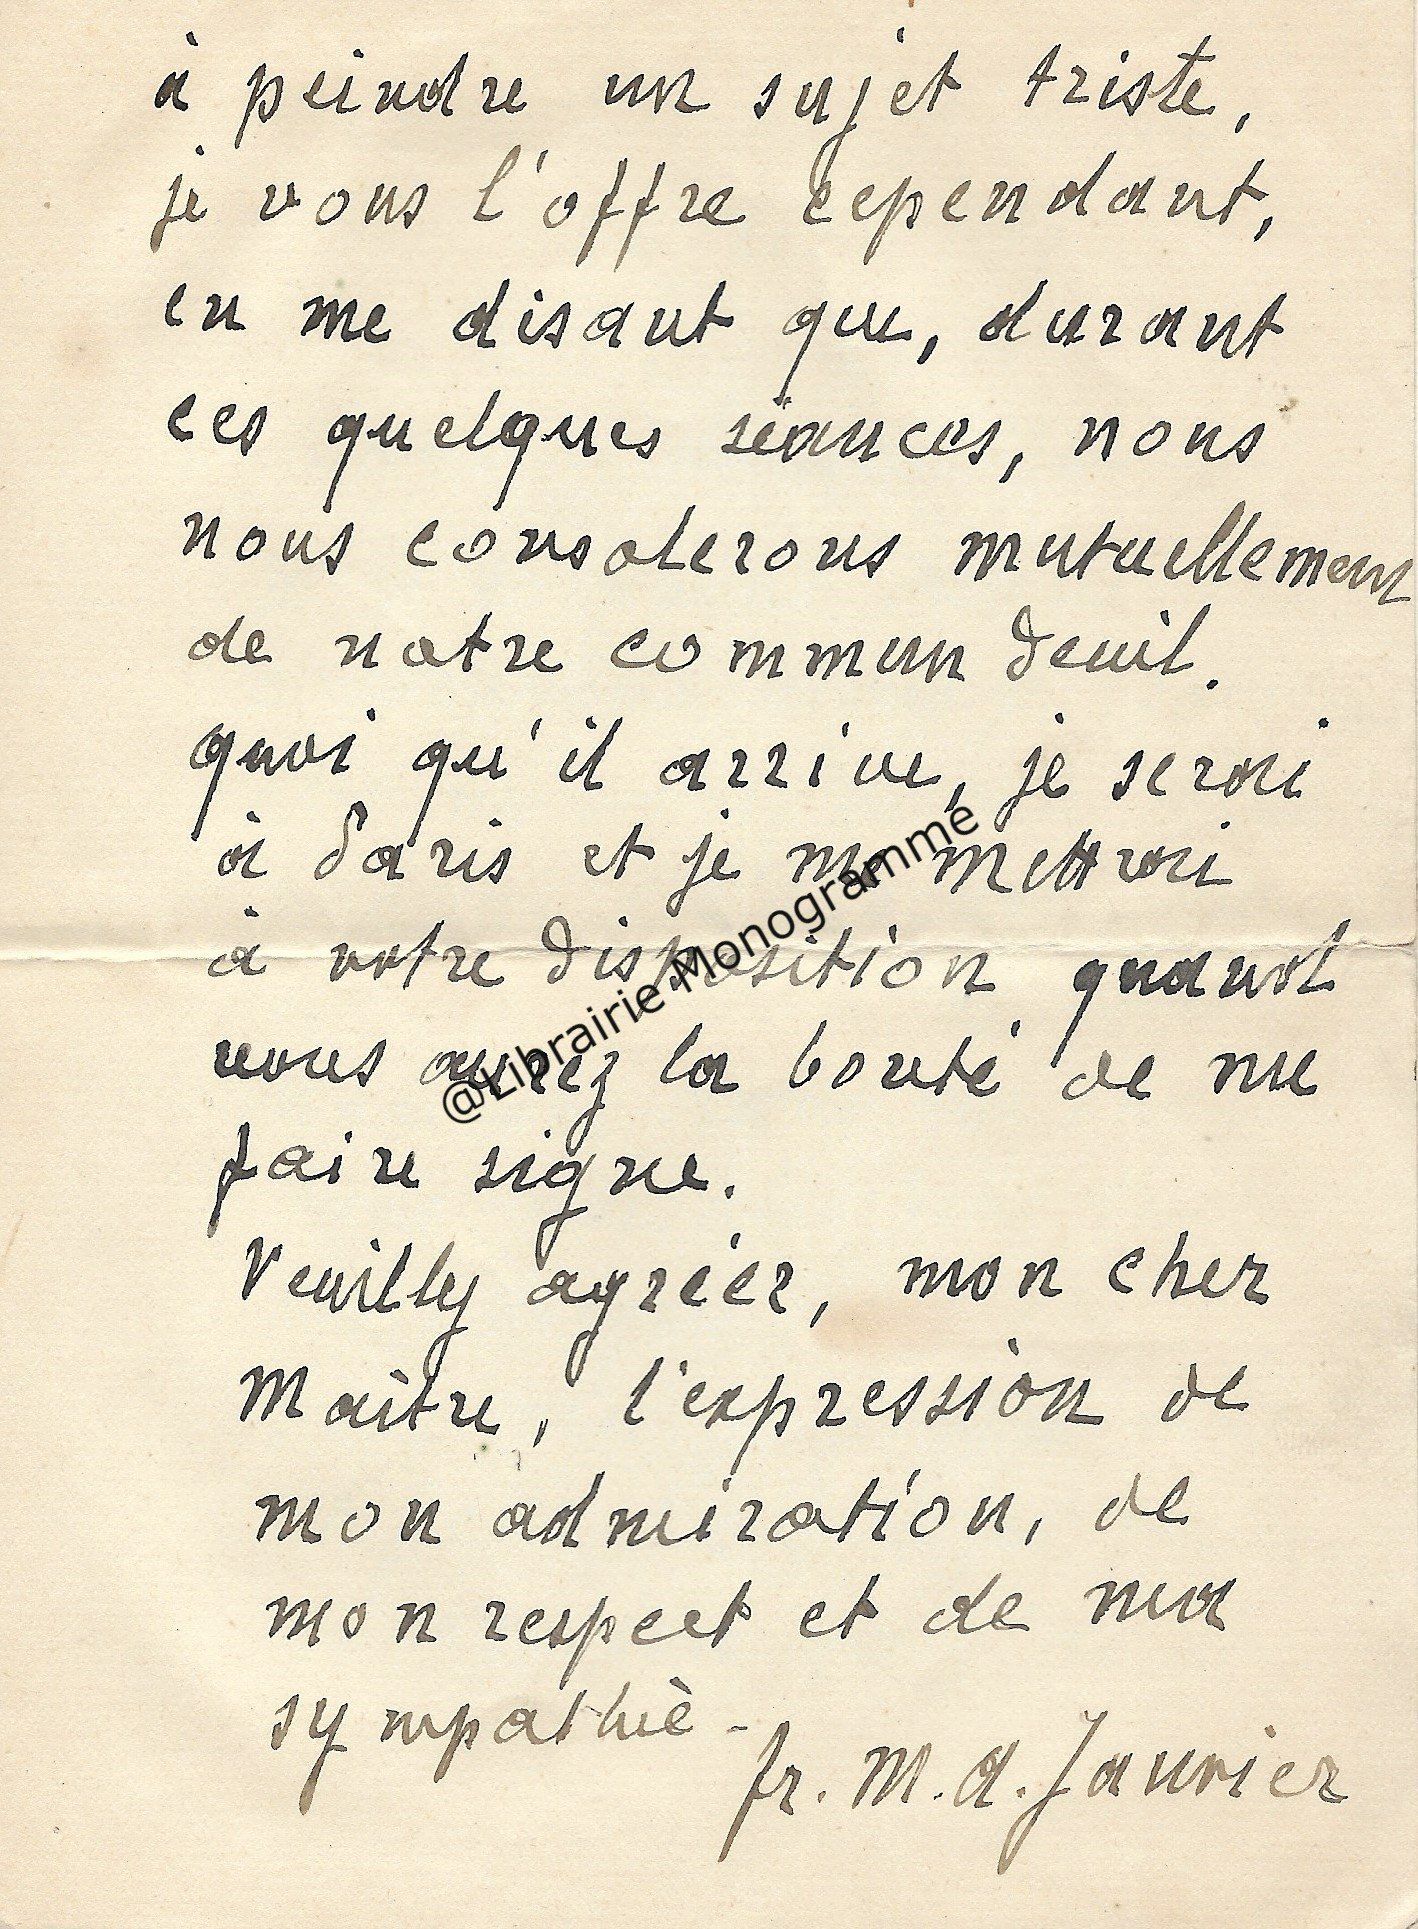 à peindre un sujet triste,
je vous l'offre cependant,
en me disant que, durant
ces quelques séances, nous
nous consolerons mutuellement
de notre commun deuil.
quoi qu'il arrive, je serai
à Paris et je me mettrai
à votre disposition quand
vous aurez la bonté de me
faire signe.
Veuillez agréer, mon cher
Maître, l'expression de
mon admiration, de
mon respect et de ma
sympathie -
fr. M. A. Janvier
@Librairie Monogramme